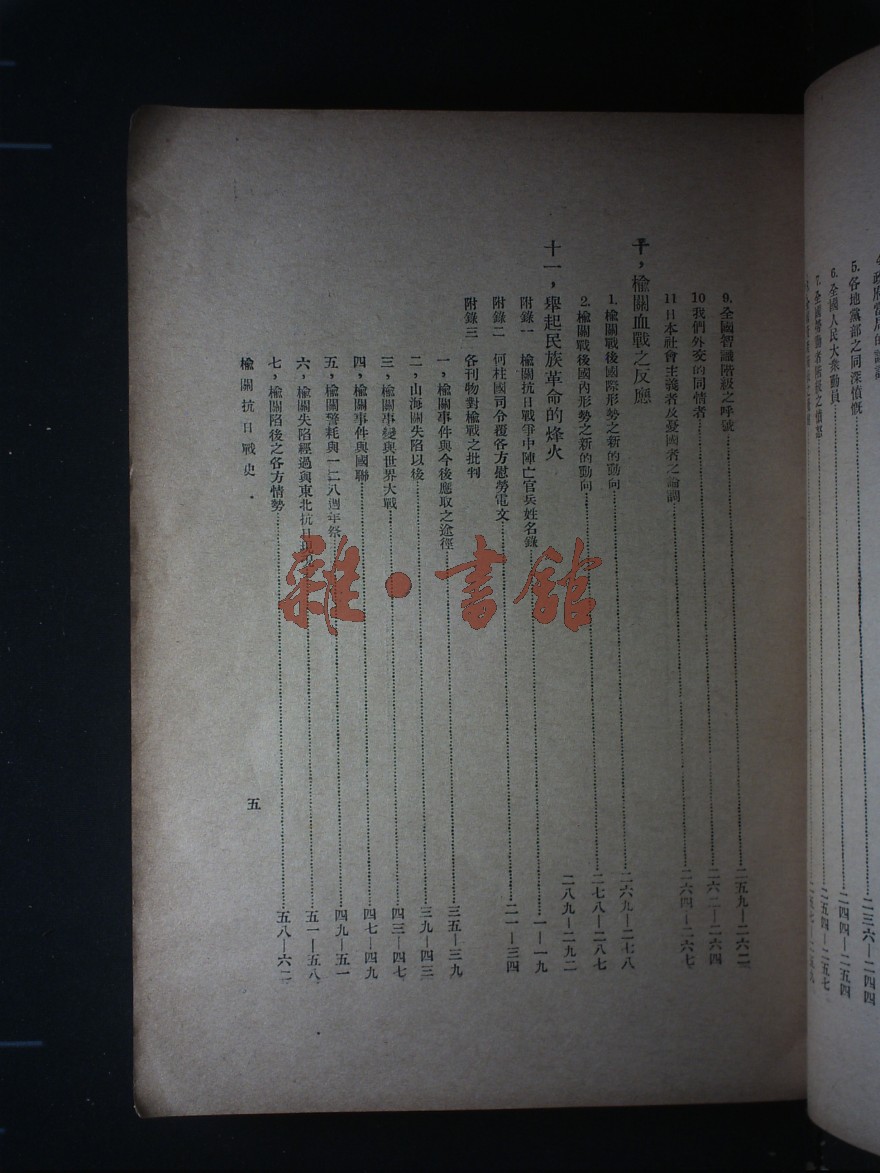 4. 政府當局的
5. 各地黨部之同深憤慨
6. 全國人民大衆動員
7. 全國勞動者階級之憤怒
二三六—二四四
二四四—二五四
二五四—二五七
9. 全國智識階級之呼號 二五九—二六二
10 我們外交的同情者 二六二—二六四
11 日本社會主義者及憂國者之論調 二六四—二六七
十，榆關血戰之反應
1. 榆關戰後國際形勢之新的動向 二六九—二七八
2. 榆關戰後國內形勢之新的動向 二七八—二八七
十一，舉起民族革命的烽火 二八九—二九二
附錄一 榆關抗日戰爭中陣亡官兵姓名錄 一—一九
附錄二 何柱國司令覆各方慰勞電文 二一—三四
附錄三 各刊物對榆戰之批判
一，榆關事件與今後應取之途徑 三五—三九
二，山海關失陷以後 三九—四三
三，榆關事變與世界大戰 四三—四七
四，榆關事件與國聯 四七—四九
五，榆關警耗與一二八週年祭 四九—五一
六，榆關失陷經過與東北抗日 五一—五八
七，榆關陷後之各方情勢 五八—六二
榆關抗日戰史
五
雜·書館